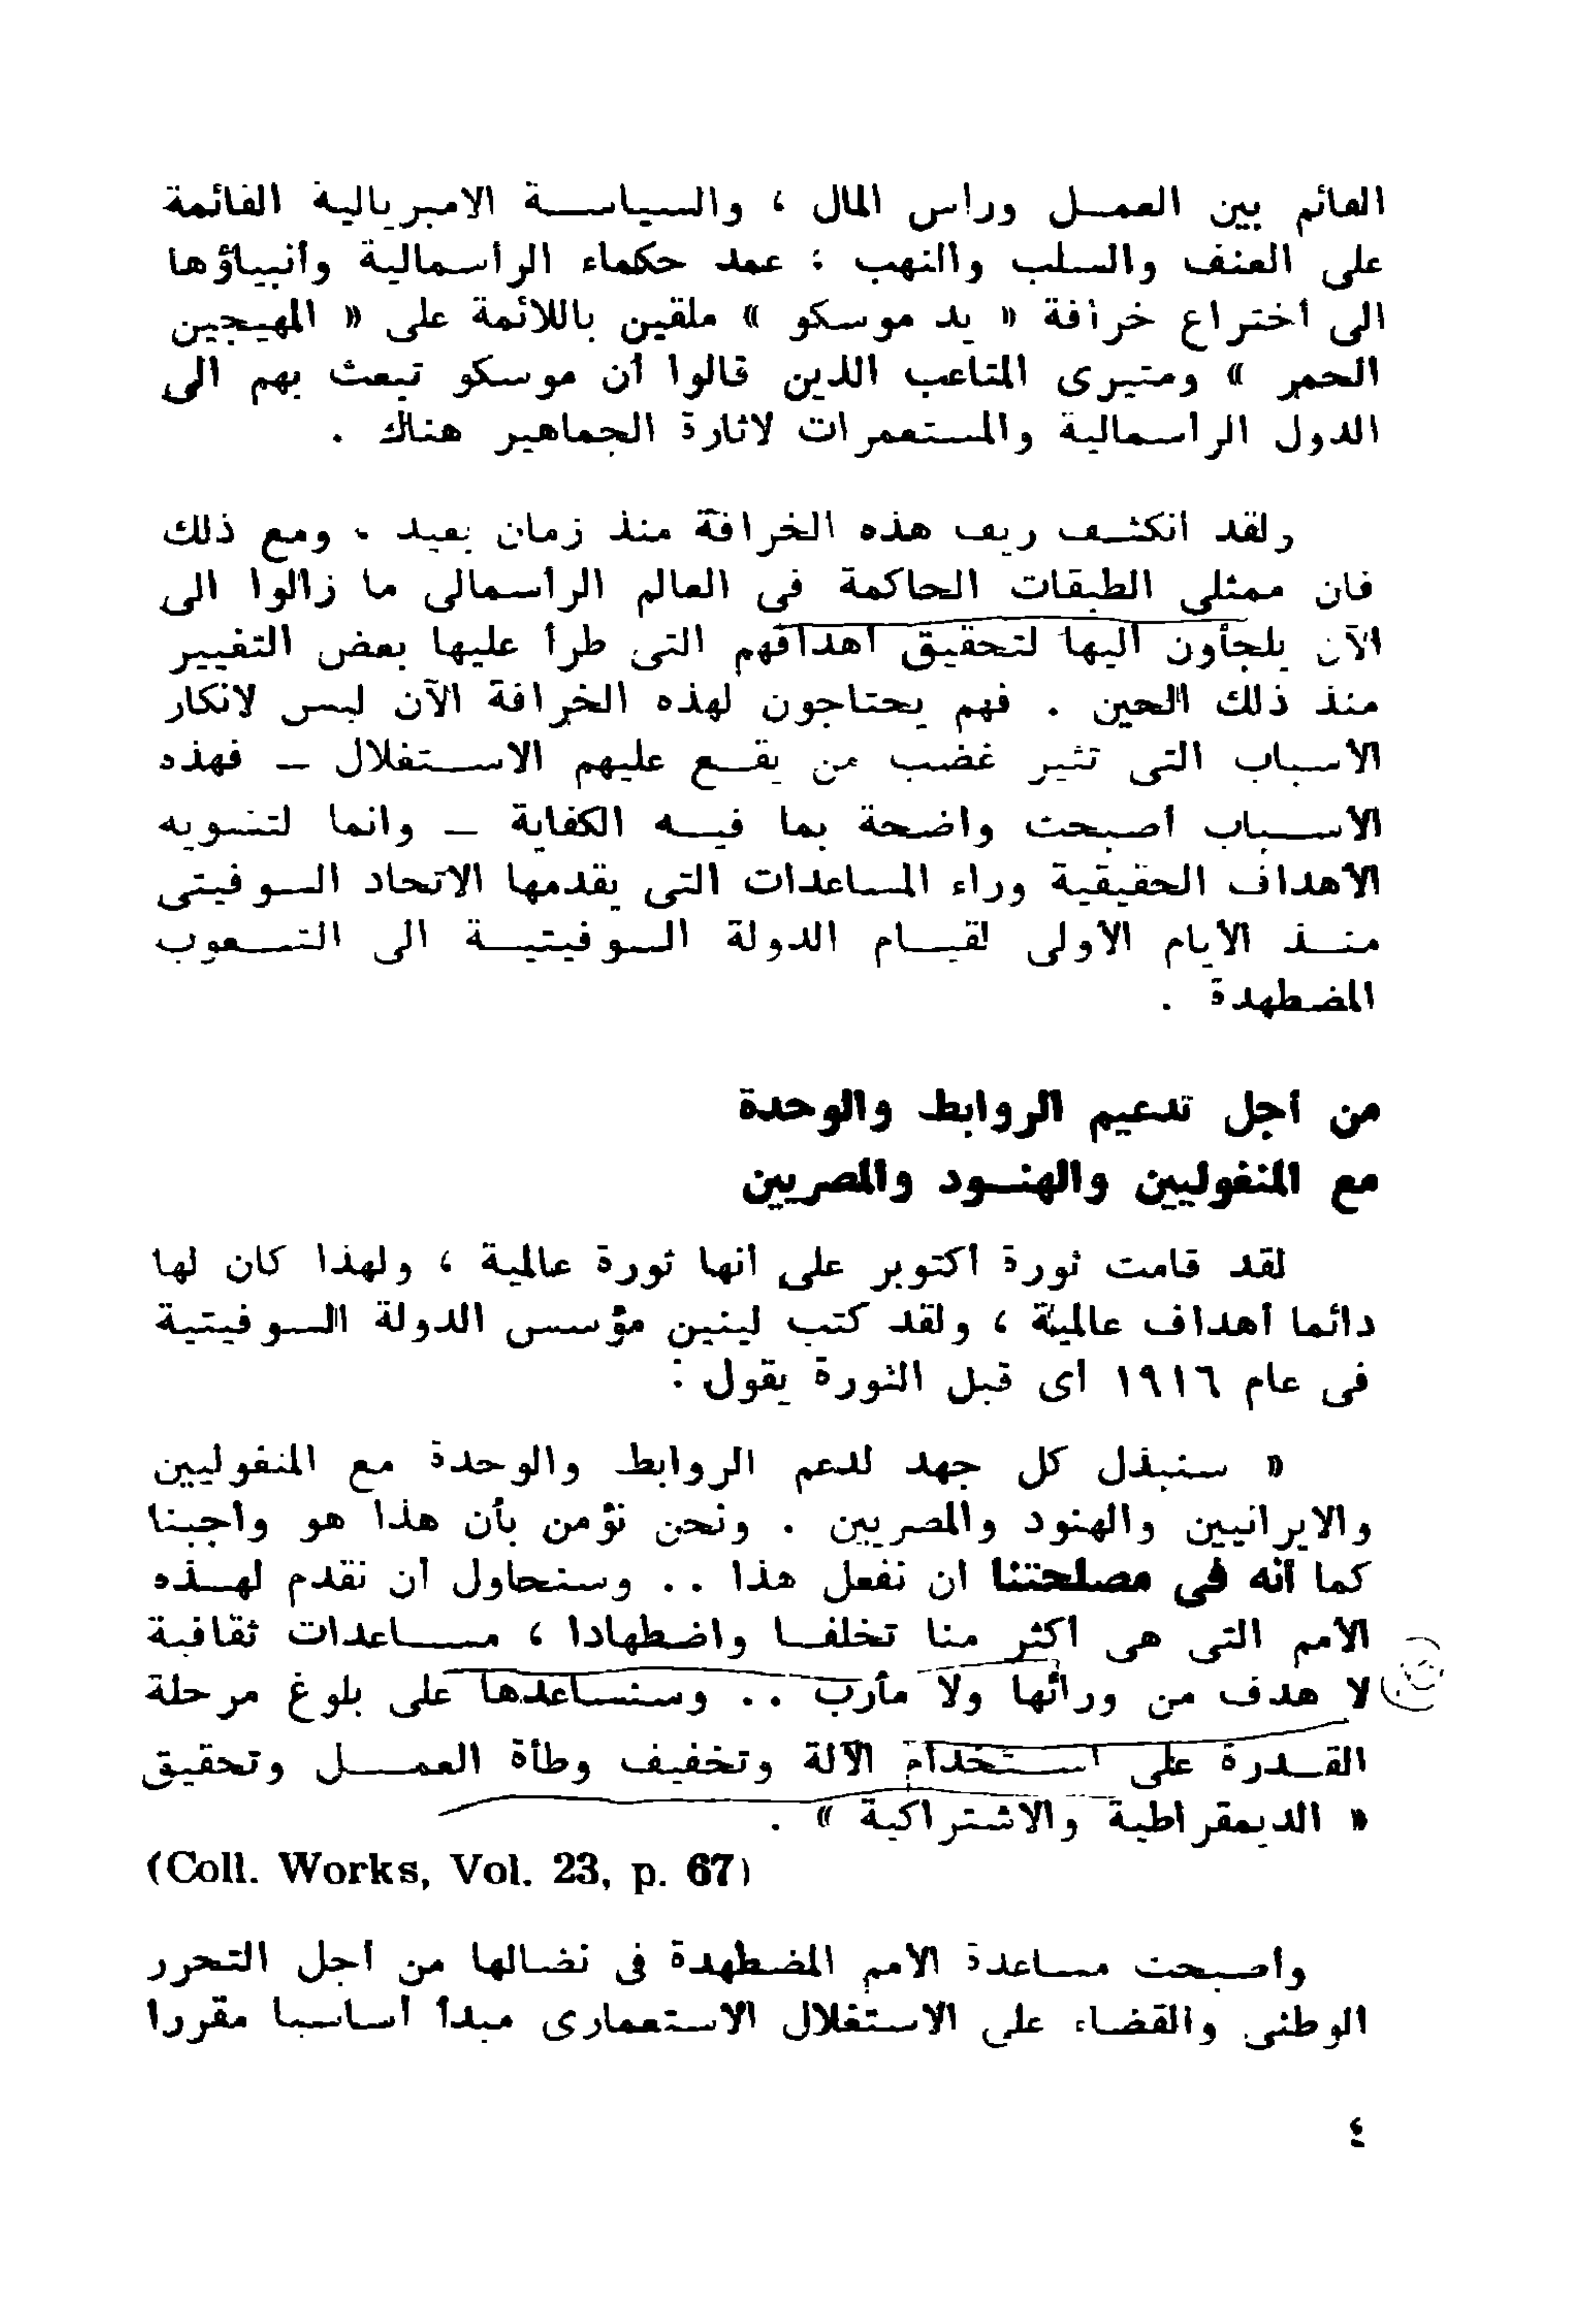 القائم بين العمـل ورأس المال ، والسياسـة الامبريالية القائمة
على العنف والسلب والنهب ؛ عمد حكماء الرأسمالية وأنبياؤها
الى أختراع خرافة « يد موسكو » ملقين باللائمة على « المهيجين
الحمر » ومثيرى المتاعب الذين قالوا أن موسكو تبعث بهم الى
الدول الرأسمالية والمستعمرات لاثارة الجماهير هناك .
ولقد انكشف زيف هذه الخرافة منذ زمان بعيد . ومع ذلك
فان ممثلى الطبقات الحاكمة فى العالم الرأسمالى ما زالوا الى
الآن يلجأون اليها لتحقيق أهدافهم التى طرأ عليها بعض التغيير
منذ ذلك الحين . فهم يحتاجون لهذه الخرافة الآن ليس لانكار
الأسباب التى تثير غضب من يقـع عليهم الاسـتغلال – فهذه
الأسـباب أصبحت واضحة بما فيـه الكفاية – وانما لتشويه
الأهداف الحقيقية وراء المساعدات التى يقدمها الاتحاد السوفيتى
منـذ الأيام الأولى لقيـام الدولة السوفيتيـة الى الشـعوب
المضطهدة .
من أجل تدعيم الروابط والوحدة
مع المنغوليين والهنـود والمصريين
لقد قامت ثورة أكتوبر على أنها ثورة عالمية ، ولهذا كان لها
دائما أهداف عالمية ، ولقد كتب لينين مؤسس الدولة السوفيتية
فى عام ١٩١٦ أى قبل الثورة يقول :
« سنبذل كل جهد لدعم الروابط والوحدة مع المنغوليين
والايرانيين والهنود والمصريين . ونحن نؤمن بأن هذا هو واجبنا
كما أنه فى مصلحتنا ان نفعل هذا .. وسنحاول أن نقدم لهـذه
الأمم التى هى أكثر منا تخلفـا واضطهادا ، مسـاعدات ثقافية
لا هدف من ورائها ولا مأرب .. وسنساعدها على بلوغ مرحلة
القـدرة على اسـتخدام الآلة وتخفيف وطأة العمـل وتحقيق
« الديمقراطية والاشتراكية » .
(Coll. Works, Vol. 23, p. 67)
وأصبحت مساعدة الأمم المضطهدة فى نضالها من أجل التحرر
الوطنى والقضاء على الاستغلال الاستعمارى مبدأ أساسيا مقررا
٤